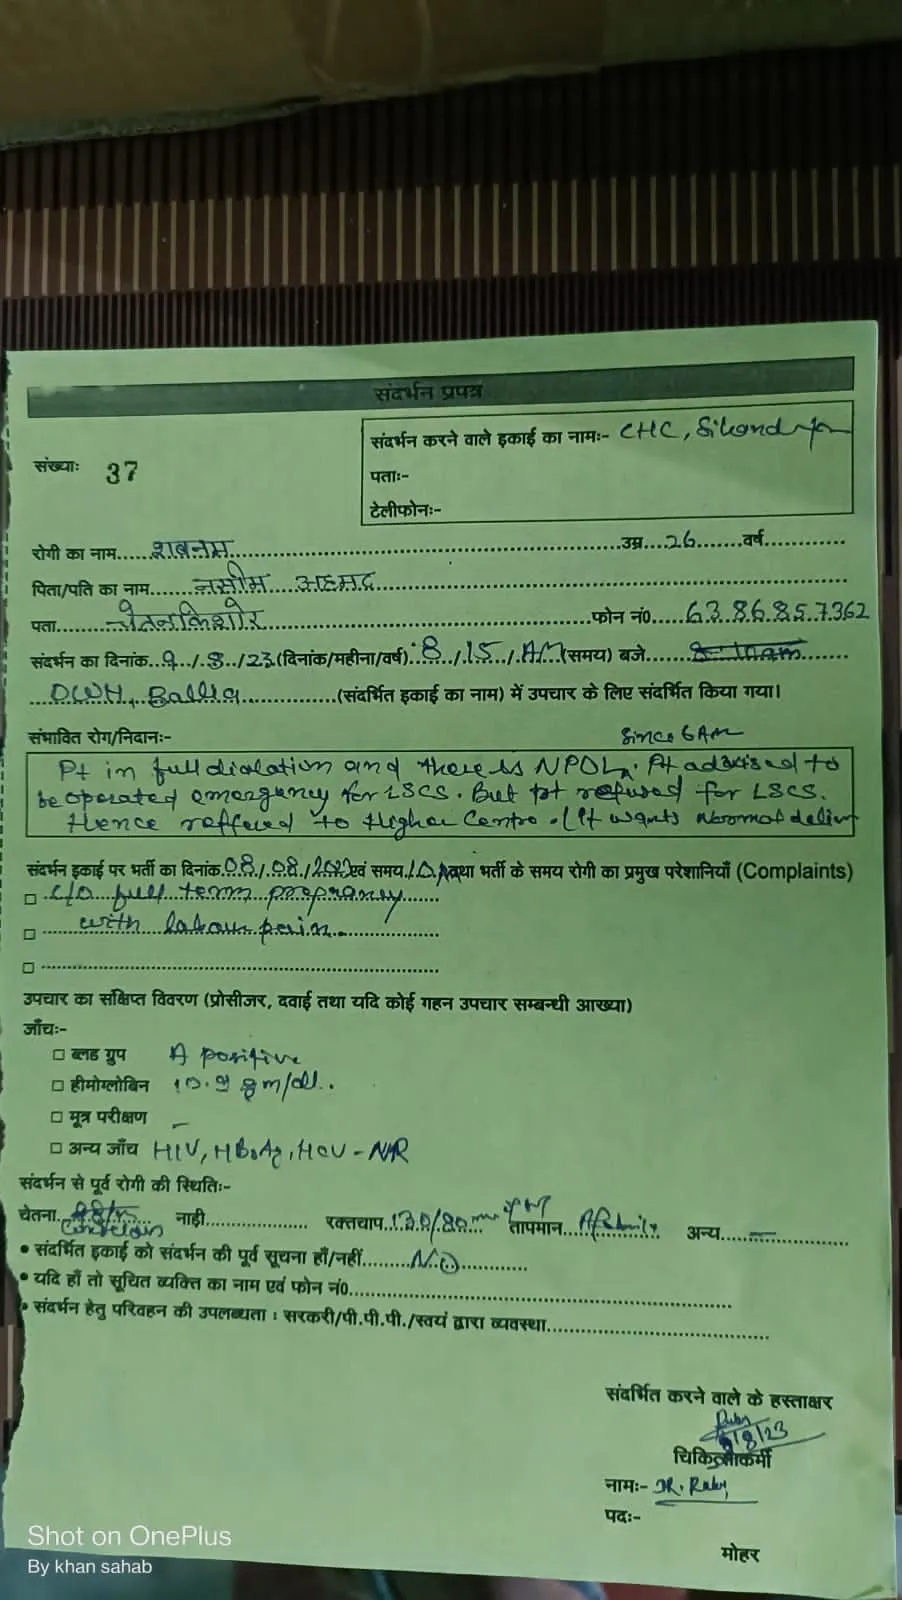 संदर्भन प्रपत्र
संदर्भन करने वाले इकाई का नामः- CHC,
संख्याः 37
पताः-
टेलीफोनः-
रोगी का नाम.....शबनम.....उम्र....26......वर्ष............
पिता/पति का नाम......नसीम अहमद......
पता......चेतनकिशोर......फोन नं0....6386857362
संदर्भन का दिनांक..9../..8../23.(दिनांक/महीना/वर्ष).8../.15./.AM(समय) बजे......
DWH, Ballia...............(संदर्भित इकाई का नाम) में उपचार के लिए संदर्भित किया गया।
संभावित रोग/निदानः- Since 6 Am
Pt in full dialation and there is NPOL. Pt advised to
be operated emergency for LSCS. But pt refused for LSCS.
Hence reffered to Higher Centre. (Pt wants Normal deliv
संदर्भन इकाई पर भर्ती का दिनांक.08./.08./.एवं समय तथा भर्ती के समय रोगी का प्रमुख परेशानियाँ (Complaints)
□ c/o full term pregnancy
□ with labour pain.
□ ......................................
उपचार का संक्षिप्त विवरण (प्रोसीजर, दवाई तथा यदि कोई गहन उपचार सम्बन्धी आख्या)
जाँचः-
□ ब्लड ग्रुप A positive
□ हीमोग्लोबिन 10.9 gm/dl.
□ मूत्र परीक्षण –
□ अन्य जाँच HIV, HBsAg, HCV - NR
संदर्भन से पूर्व रोगी की स्थितिः-
चेतना........ नाड़ी................ रक्तचाप.130/80 mm of Hg तापमान..Afebrile अन्य....–............
• संदर्भित इकाई को संदर्भन की पूर्व सूचना हाँ/नहीं.......No...........
• यदि हाँ तो सूचित व्यक्ति का नाम एवं फोन नं0......................................
• संदर्भन हेतु परिवहन की उपलब्धता : सरकरी/पी.पी.पी./स्वयं द्वारा व्यवस्था..............................
संदर्भित करने वाले के हस्ताक्षर
9/8/23
चिकित्साकर्मी
नामः- DR. Ruby
पदः-
मोहर
Shot on OnePlus
By khan sahab